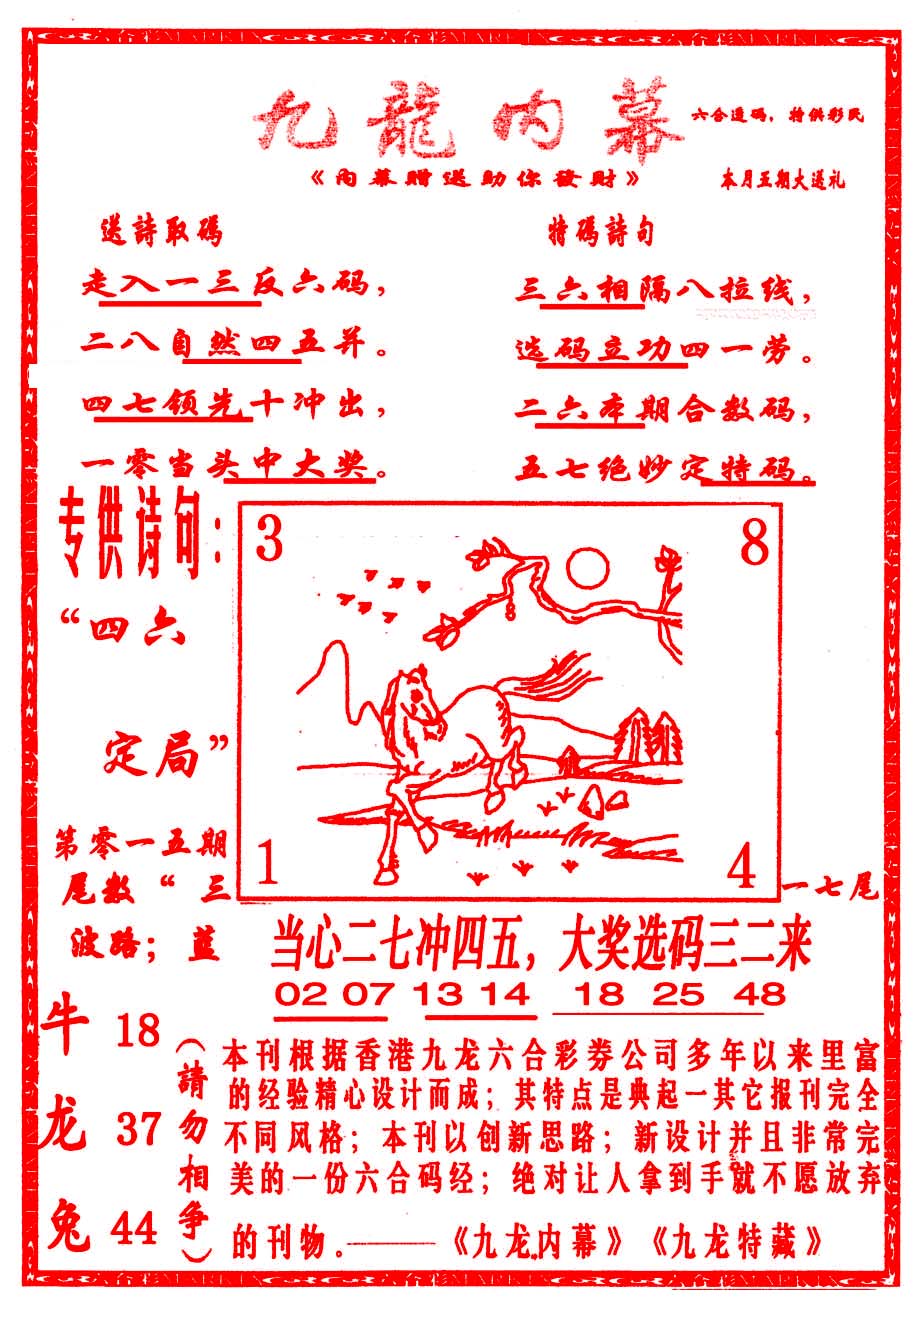 九龍内幕
六合透码，特供彩民
《内幕赠送助你發財》
本月五期大送礼
送詩取碼
走入一三反六码，
二八自然四五并。
四七领先十冲出，
一零当头中大奖。
特碼詩句
三六相隔八拉线，
选码立功四一劳。
二六本期合数码，
五七绝妙定特码。
专供诗句：
“四六
定局”
第零一五期
尾数“三
波路；蓝
3
8
1
4
一七尾
当心二七冲四五，大奖选码三二来
02 07 13 14 18 25 48
牛 18
龙 37
兔 44
（請勿相争）
本刊根据香港九龙六合彩券公司多年以来里富
的经验精心设计而成；其特点是典起一其它报刊完全
不同风格；本刊以创新思路；新设计并且非常完
美的一份六合码经；绝对让人拿到手就不愿放弃
的刊物。———《九龙内幕》《九龙特藏》